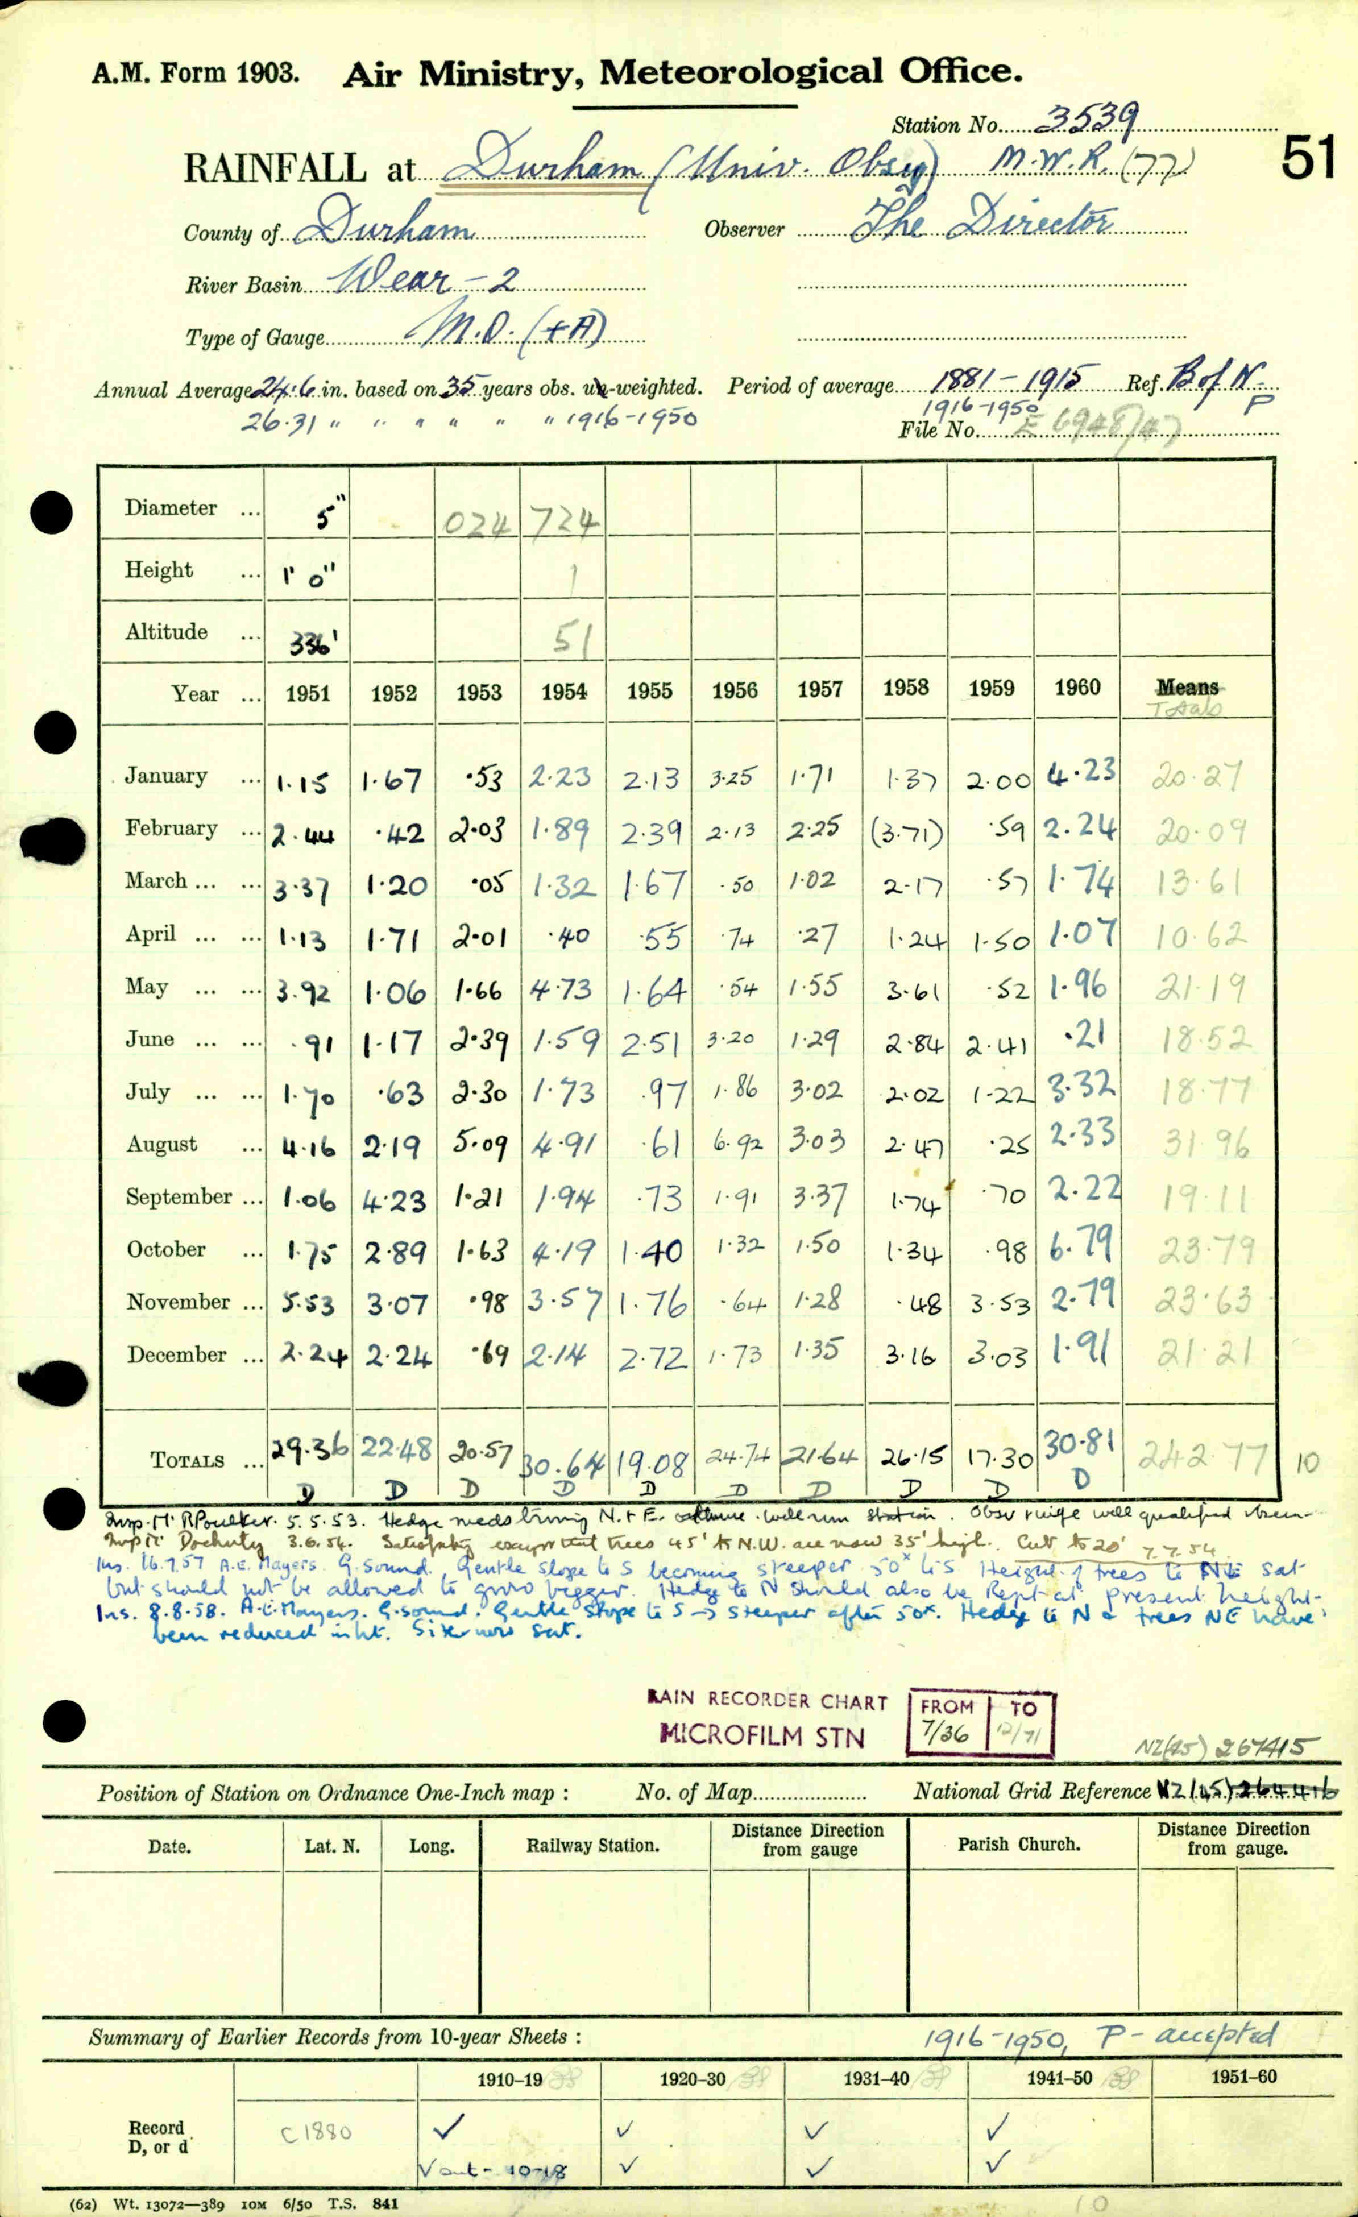 A.M. Form 1903. Air Ministry, Meteorological Office.
Station No. 3539
RAINFALL at Durham (Univ. Obsy) M.W.R. (77) 51
County of Durham Observer The Director
River Basin Wear - 2
Type of Gauge M.O. (+A)
Annual Average 24.6 in. based on 35 years obs. un-weighted. Period of average 1881-1915 Ref. B of N.
26.31 " " " " " " 1916-1950 1916-1950 P
File No. E 6948/47
Diameter ... 5" 024 724
Height ... 1' 0" 1
Altitude ... 336' 51
Year ... 1951 1952 1953 1954 1955 1956 1957 1958 1959 1960 Means
Totals
January ... 1.15 1.67 .53 2.23 2.13 3.25 1.71 1.37 2.00 4.23 20.27
February ... 2.44 .42 2.03 1.89 2.39 2.13 2.25 (3.71) .59 2.24 20.09
March ... ... 3.37 1.20 .05 1.32 1.67 .50 1.02 2.17 .57 1.74 13.61
April ... ... 1.13 1.71 2.01 .40 .55 .74 .27 1.24 1.50 1.07 10.62
May ... ... 3.92 1.06 1.66 4.73 1.64 .54 1.55 3.61 .52 1.96 21.19
June ... ... .91 1.17 2.39 1.59 2.51 3.20 1.29 2.84 2.41 .21 18.52
July ... ... 1.70 .63 2.30 1.73 .97 1.86 3.02 2.02 1.22 3.32 18.77
August ... 4.16 2.19 5.09 4.91 .61 6.92 3.03 2.47 .25 2.33 31.96
September ... 1.06 4.23 1.21 1.94 .73 1.91 3.37 1.74 .70 2.22 19.11
October ... 1.75 2.89 1.63 4.19 1.40 1.32 1.50 1.34 .98 6.79 23.79
November ... 5.53 3.07 .98 3.57 1.76 .64 1.28 .48 3.53 2.79 23.63
December ... 2.24 2.24 .69 2.14 2.72 1.73 1.35 3.16 3.03 1.91 21.21
TOTALS ... 29.36 22.48 20.57 30.64 19.08 24.74 21.64 26.15 17.30 30.81 242.77 10
D D D D D D D D D D
Insp. Mr R Poulter. 5.5.53. Hedge needs trimming N. & E. well run station. Obsr well qualified
Insp Mr Docherty 3.6.54. Satisfactory except that trees 45' to N.W. are now 35' high. Cut to 20' 7.7.54
Ins. 16.7.57 A.E. Mayers. G. sound. Gentle slope to S becoming steeper 50x to S. Height of trees to NE sat
but should not be allowed to grow bigger. Hedge to N should also be kept at present height.
Ins. 8.8.58. A.E. Mayers. G. sound. Gentle slope to S → steeper after 50x. Hedge to N & trees NE have
been reduced in ht. Site now sat.
RAIN RECORDER CHART FROM TO
MICROFILM STN 7/36 12/71
NZ(45) 267415
Position of Station on Ordnance One-Inch map : No. of Map National Grid Reference NZ(45) 264416
Date. Lat. N. Long. Railway Station. Distance from gauge Direction Parish Church. Distance from gauge. Direction
Summary of Earlier Records from 10-year Sheets : 1916-1950, P - accepted
1910-19 1920-30 1931-40 1941-50 1951-60
Record C1880 ✓ ✓ ✓ ✓
D, or d ✓ out - 10-18 ✓ ✓ ✓
(62) Wt. 13072—389 10M 6/50 T.S. 841 10